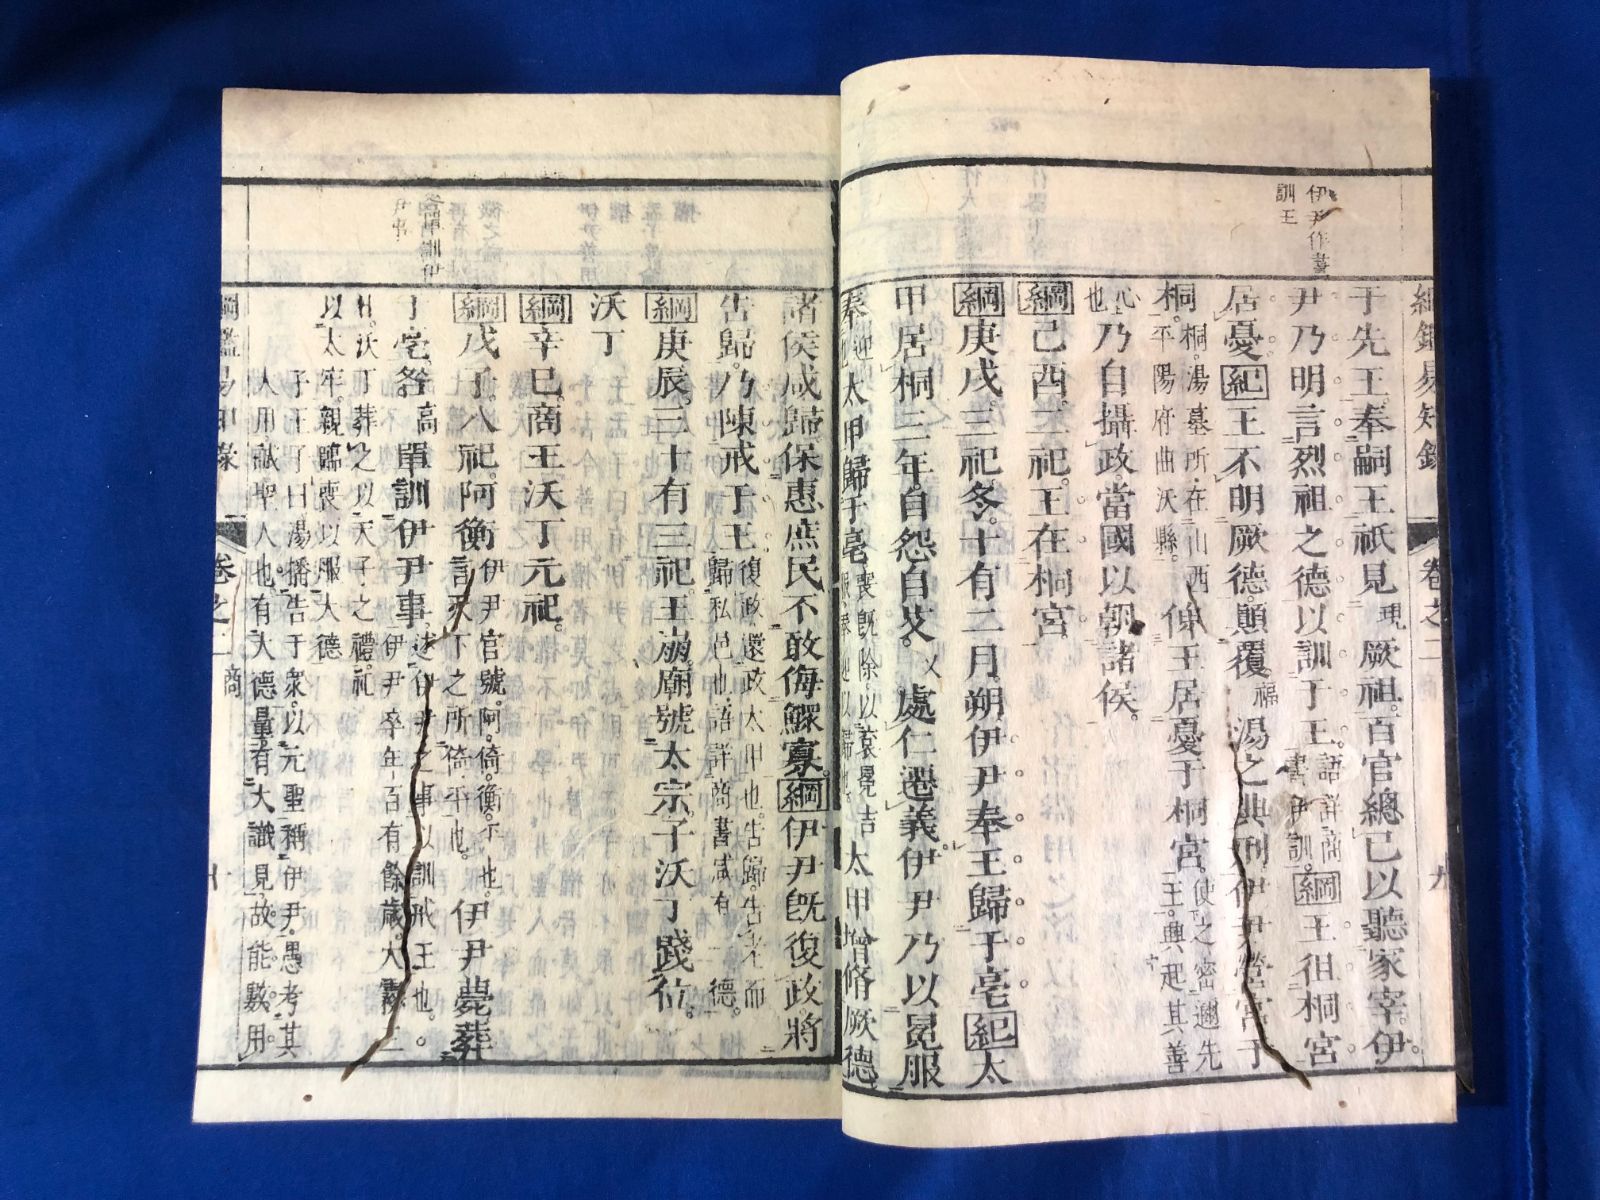 伊尹作書
訓王
綱鑑易知錄 卷之二 九
于先王奉嗣王祇見現厥祖。百官總己以聽冢宰。伊
尹乃明言烈祖之德以訓于王。語詳商書、伊訓。綱王徂桐宮
居憂。紀王不明厥德。顛覆福湯之典刑。伊尹營宮于
桐。桐。湯墓所在。山西平陽府曲沃縣。俾王居憂于桐宮。使之密邇先王。興起其善
心也乃自攝政當國以朝諸侯。
綱己酉。二祀。王在桐宮
綱庚戌三祀。冬。十有二月朔伊尹奉王歸于亳紀太
甲居桐三年。自怨自艾。乂處仁遷義。伊尹乃以冕服
奉迎太甲歸于亳太甲增脩厥德
諸侯咸歸保惠庶民不敢侮鰥寡。綱伊尹旣復政將
告歸。乃陳戒于王。復政還政太甲也。告歸。告老而歸私邑也。語詳商書咸有一德。
綱庚辰。三十有三祀。王崩。廟號太宗。子沃丁踐位。
沃丁
綱辛巳。商王沃丁元祀。
綱戊子。八祀。阿衡伊尹官號。阿。倚。衡。平也。言天下之所倚平也。伊尹薨葬
于亳咎高單訓伊尹事。述伊尹之事以訓戒王也。伊尹卒年百有餘歲。大霧三
日。沃丁葬之以天子之禮。祀
以太牢。親臨喪以服大德
子王子曰湯播告于衆。以元聖稱伊尹。愚考其
人用獻聖人也。有大德量。有大識見。故能數用。
綱鑑易知錄 卷之二 商